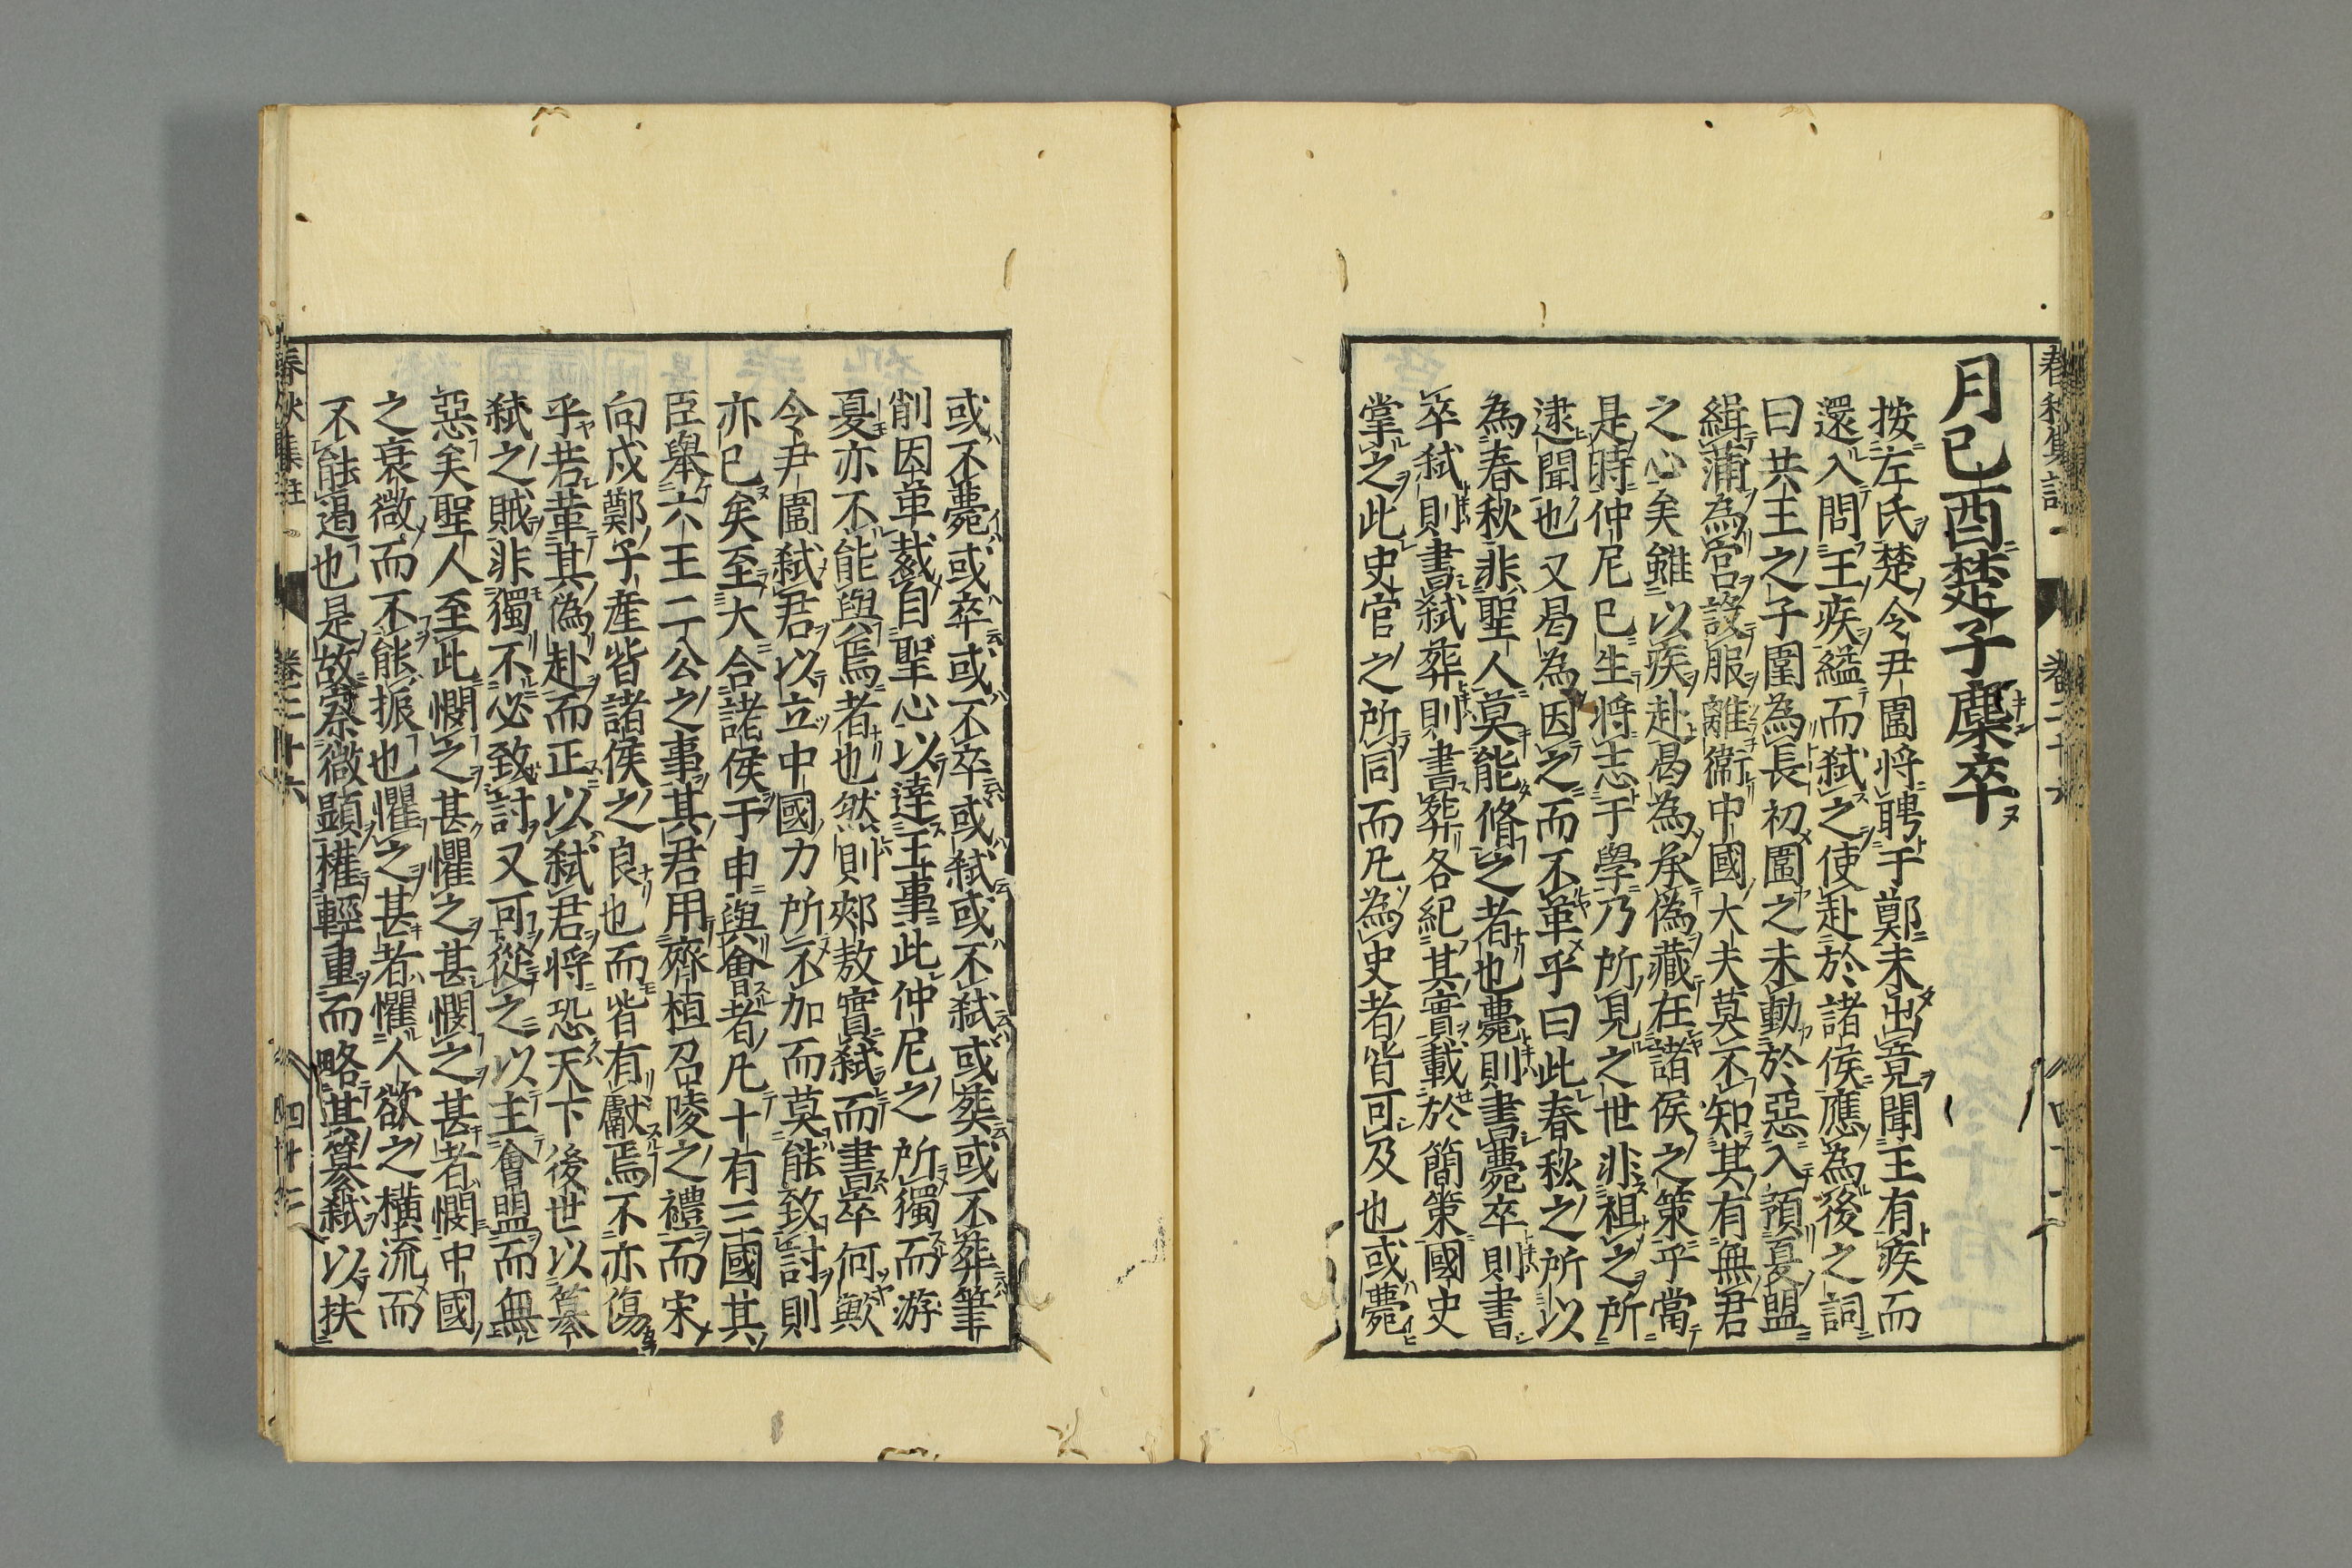 月己酉楚子麇卒
按左氏楚令尹圍將聘于鄭未出竟聞王有疾而
還入問王疾縊而弑之使赴於諸侯應為後之詞
曰共王之子圍為長初圍之未動於惡入預夏盟
緝蒲為宮設服離衛中國大夫莫不知其有無君
之心矣雖以疾赴曷為承偽藏在諸侯之策乎當
是時仲尼已生將志于學乃所見之世非祖之所
逮聞也又曷為因之而不革乎曰此春秋之所以
為春秋非聖人莫能脩之者也薨則書薨卒則書
卒弑則書弑葬則書葬各紀其實載於簡策國史
掌之此史官之所同而凡為史者皆可及也或薨
或不薨或卒或不卒或弑或不弑或葬或不葬筆
削因革裁自聖心以達王事此仲尼之所獨而游
夏亦不能與焉者也然則郟敖實弑而書卒何歟
令尹圍弑君以立中國力所不加而莫能致討則
亦已矣至大合諸侯于申與會者凡十有三國其
臣舉六王二公之事其君用齊桓召陵之禮而宋
向戌鄭子產皆諸侯之良也而皆有獻焉不亦傷
乎若革其偽赴而正以弑君將恐天下後世以篡
弑之賊非獨不必致討又可從之以主會盟而無
惡矣聖人至此憫之甚懼之甚憫之甚者憫中國
之衰微而不能振也懼之甚者懼人欲之橫流而
不能遏也是故察微顯權輕重而略其篡弑以扶
春秋集註
卷三十六
四十三